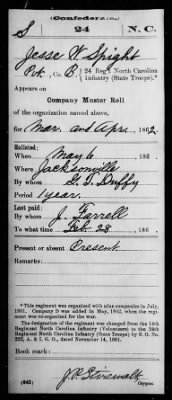 (Confederate.)
S 24 N. C.
Jesse W. Spight
Pvt., Co. B, 24 Reg't North Carolina
Infantry (State Troops).*
Appears on
Company Muster Roll
of the organization named above,
for Mar. and Apr., 1862.
Enlisted:
When May 6, 186 .
Where Jacksonville
By whom G. T. Duffy
Period 1 year.
Last paid:
By whom J. Farrell
To what time Feb. 28, 186 .
Present or absent Present
Remarks:
*This regiment was organized with nine companies in July,
1861. Company D was added in May, 1862, when the regi-
ment was
The designation of the regiment was changed from the 14th
Regiment North Carolina Infantry (Volunteers) to the 24th
Regiment North Carolina Infantry (State Troops) by S. O. No.
222, A. & I. G. O., dated November 14, 1861.
Book mark:
(642) Copyist.